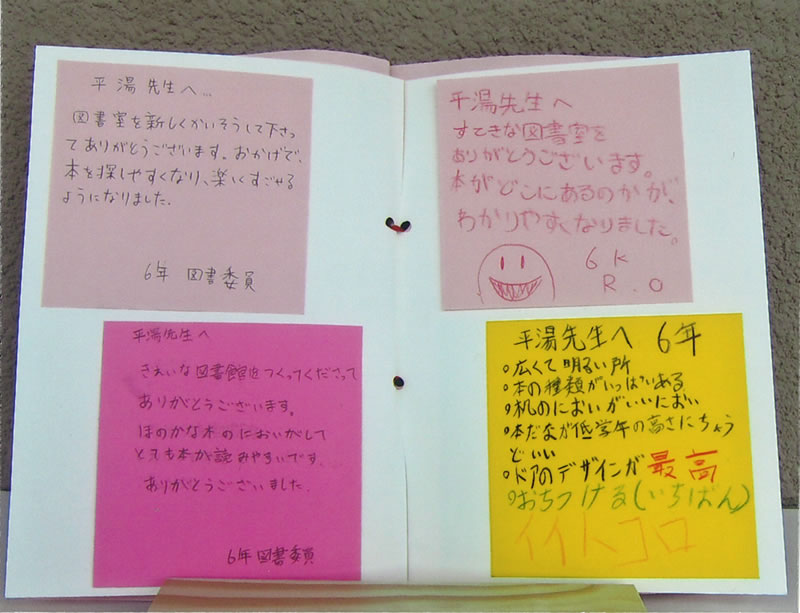 平湯先生へ…
図書室を新しくかいそうして下さっ
てありがとうございます。おかげで、
本を探しやすくなり、楽しくすごせる
ようになりました。
6年 図書委員
平湯先生へ
きれいな図書館をつくってくださって
ありがとうございます。
ほのかな木のにおいがして
とても本が読みやすいです。
ありがとうございました。
6年図書委員
平湯先生へ
すてきな図書室を
ありがとうございます。
本がどこにあるのかが、
わかりやすくなりました。
6 K
R.O
平湯先生へ 6年
○広くて明るい所
○本の種類がいっぱいある
○机のにおいがいいにおい
○本だなが低学年の高さにちょう
どいい
○ドアのデザインが最高
○おちつける(いちばん)
イイトコロ